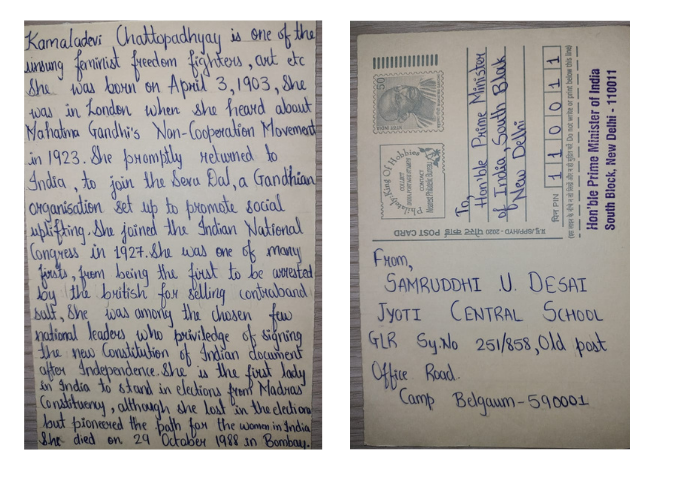 Kamaladevi Chattopadhyay is one of the
unsung feminist freedom fighters, art etc
She was born on April 3, 1903, She
was in London when she heard about
Mahatma Gandhi's Non-Cooperation Movement
in 1923. She promptly returned to
India, to join the Seva Dal, a Gandhian
organisation set up to promote social
uplifting. She joined the Indian National
Congress in 1927. She was one of many
firsts, from being the first to be arrested
by the british for selling contraband
salt, She was among the chosen few
national leaders who priviledge of signing
the new Constitution of Indian document
after Independence. She is the first lady
in India to stand in elections from Madras
Constituency, although she lost in the election
but pioneered the path for the women in India
She died on 29 October 1988 in Bombay.
50
Philately King Of Hobbies
POST CARD
To,
Hon'ble Prime Minister
of India, South Blok
New Delhi
पिन PIN 110011
Do not write or print below this line
Hon'ble Prime Minister of India
South Block, New Delhi - 110011
From,
SAMRUDDHI U. DESAI
JYOTI CENTRAL SCHOOL
GLR Sy.No 251/858, Old post
Office Road.
Camp Belgaum-590001